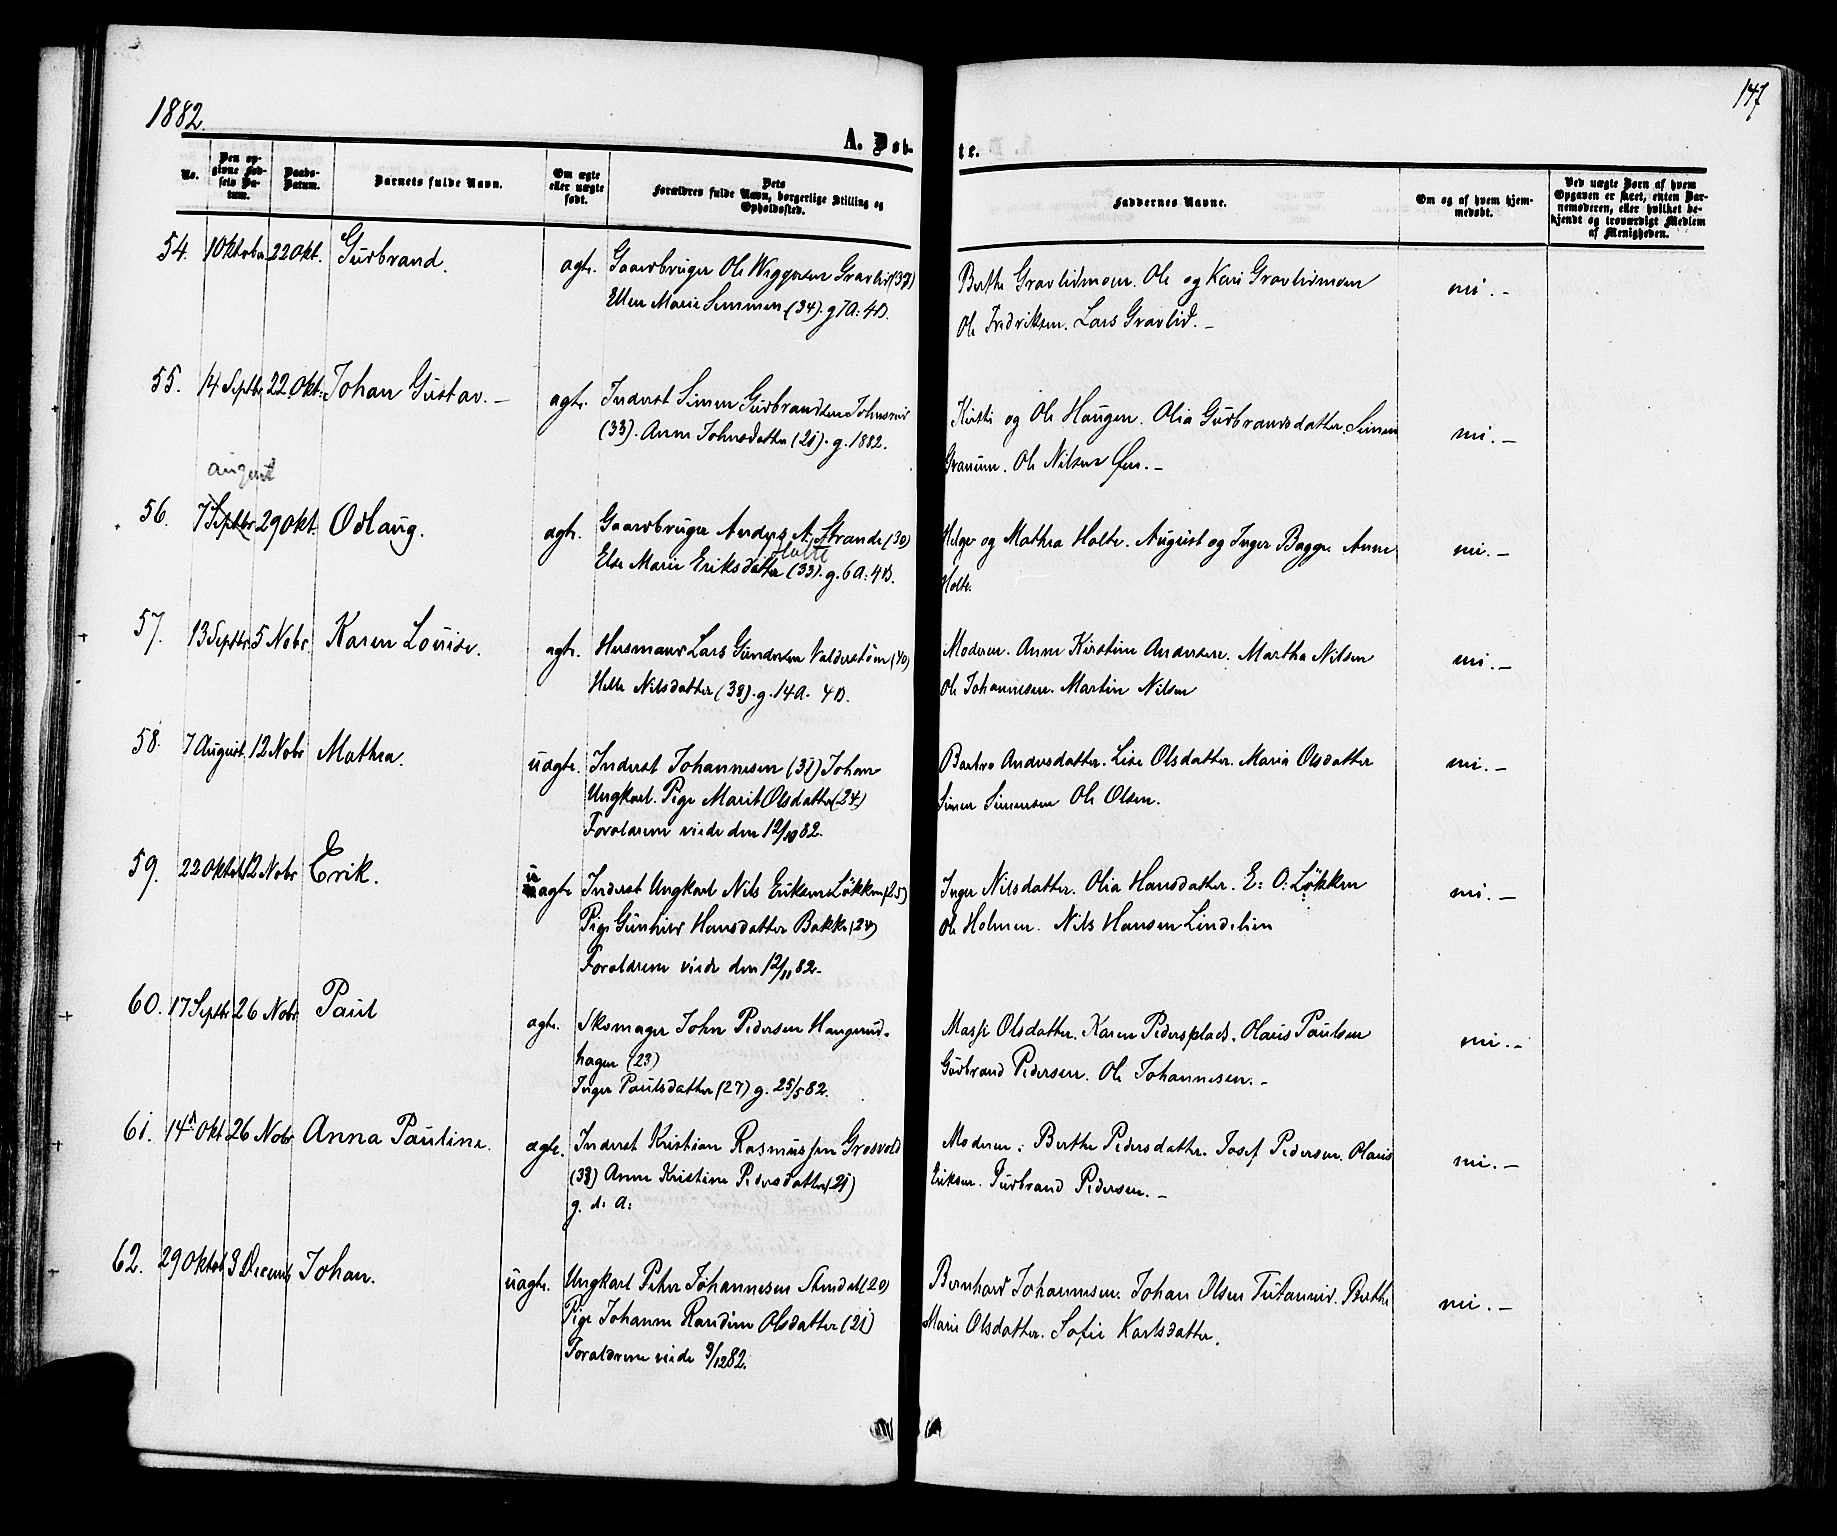 1882.
147
A. Døb-
te.
No.
Den op-
givne Fød-
sels Da-
tum.
Daabs-
Datum.
Barnets fulde Navn.
Om ægte
eller uægte
født.
Dets
Forældres fulde Navn, borgerlige Stilling og
Opholdssted.
Faddernes Navne.
Om og af hvem hjem-
medøbt.
Ved uægte Børn af hvem
Opgaven er skeet, enten Bar-
nemoderen, eller hvilket be-
kjendt og troværdigt Medlem
af Menigheden.
54. 1 Oktober 22 Okt. Gudbrand. ægte. Gaardbruger Ole Gravlid (37)
Ellen Marie Simensen (34). g 7 A: 4 D.
Berthe Gravlidmoen. Ole og Kari Gravlidmoen
Ole Fredriksen. Lars Gravlid. –
ni. –
55. 14 Septbr 22 Okt. Johan Gustav. – ægte. Inderst Simen Gudbrandsen
(33). Anne Johnsdatter (21). g. 1882.
Kirsti og Ole Haugen. Olia Gudbrandsdatter. Simen
Granum. Ole Nilsen Øen. –
ni. –
august
56. 7 Septbr 29 Okt. Odlaug. ægte. Gaardbruger Anders A. Strande (30)
Holte
Else Marie Eriksdatter (33). g. 6 A: 4 D.
Helge og Mathea Holte. August og Inger Bagge. Anne
Holte.
ni. –
57. 13 Septbr. 5 Nobr. Karen Louise. ægte. Husmand Lars Gundersen (40)
Helle Nilsdatter (38). g. 14 A. 4 D.
Moderen. Anne Kirstine Andersen. Martha Nilsen
Ole Johannesen. Martin Nilsen
ni. –
58. 7 August. 12 Nobr Mathea. uægte. Inderst Johannesen (31) Johan
Ungkarl. Pige Marit Olsdatter (24)
Forældrene viede den 12/10 82.
Barbro Andersdatter. Lise Olsdatter. Maria Olsdatter
Simen Simensen Ole Olsen.
ni. –
59. 22 Oktob 12 Nobr Erik. uægte Inderst Ungkarl Nils Eriksen Løkken (25)
Pige Gunhild Hansdatter Bakke (24)
Forældrene viede den 12/11 82. –
Inger Nilsdatter. Olia Hansdatter. E: O: Løkken
Ole Holmen. Nils Hansen Lindelien
ni. –
60. 17 Septbr 26 Nobr Paul ægte. Skomager John Pedersen Haugerud-
hagen (23)
Inger Paulsdatter (27) g. 25/5 82.
Masji Olsdatter. Karen Pedersplads. Olaus Paulsen
Gudbrand Pedersen. Ole Johannesen. –
ni. –
61. 14 Okt 26 Nobr. Anna Pauline. ægte. Inderst Kristian Rasmussen Grosvold
(38) Anne Kristine Pedersdatter (21)
g. d: A:
Moderen: Berthe Pedersdatter. Josef Pedersen. Olaus
Eriksen. Gudbrand Pedersen. –
ni. –
62. 29 Oktob 3 Decemb Johan. uægte. Ungkarl Peter Johannesen Stendal (20)
Pige Johanne Randine Olsdatter (21)
Forældrene viede 3/12 82.
Bernhard Johannesen. Johan Olsen Berthe
Marie Olsdatter. Sofie Karlsdatter.
ni. –